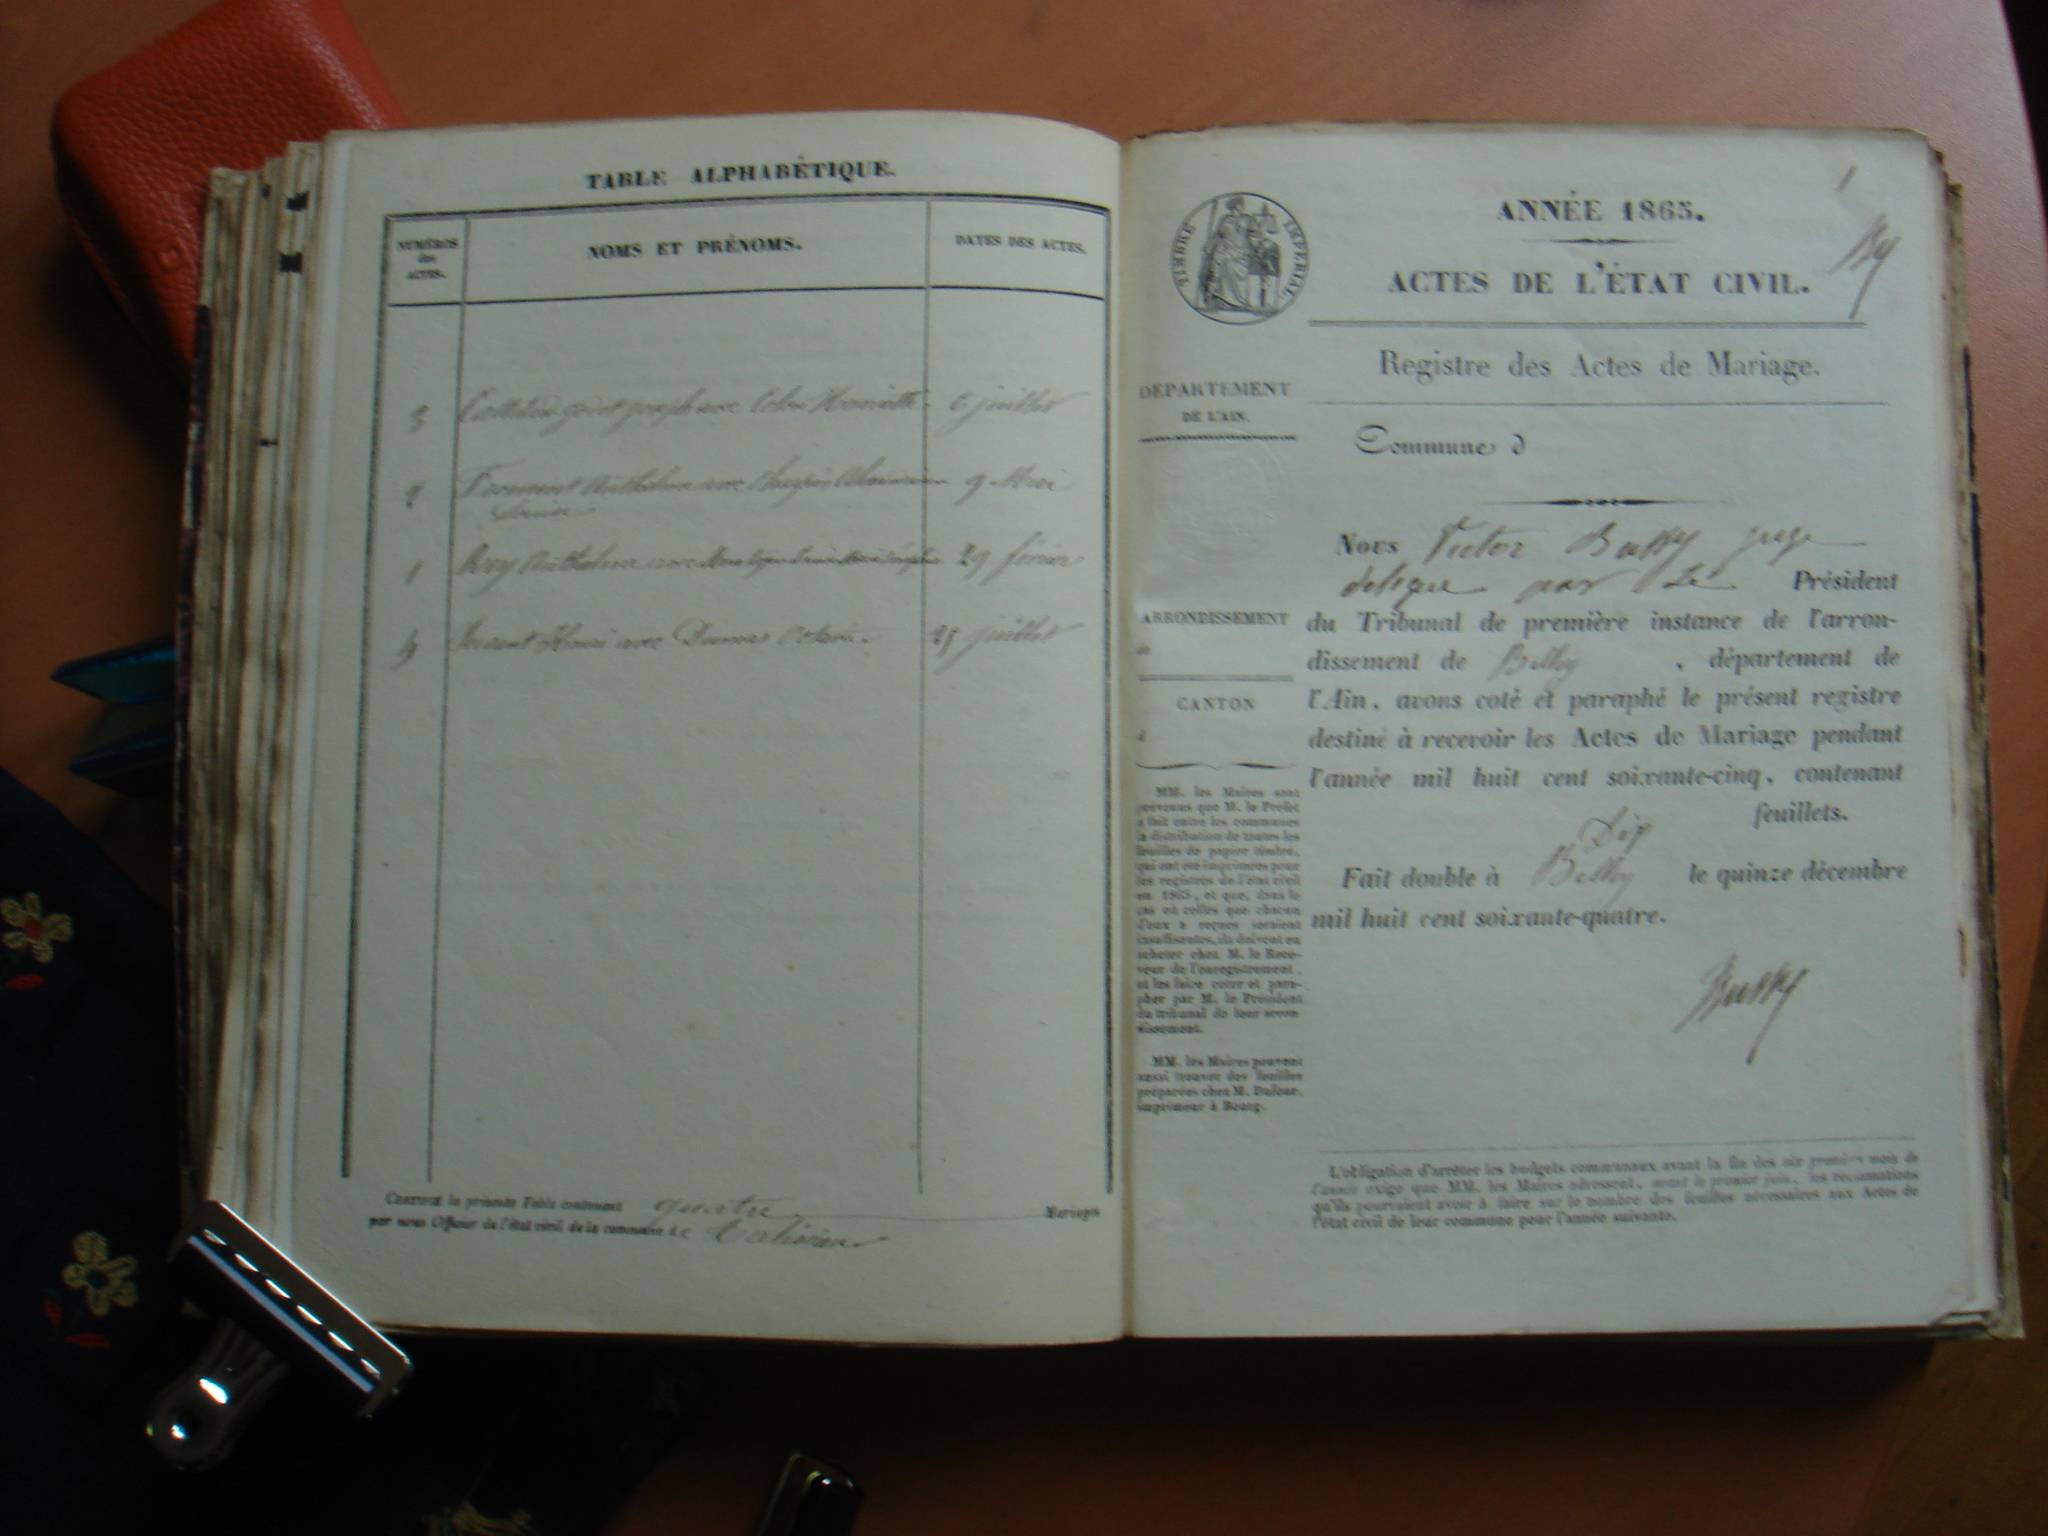 TABLE ALPHABÉTIQUE.
NUMÉROS
des
ACTES.
NOMS ET PRÉNOMS.
DATES DES ACTES.
3 joseph avec Henriette. 6 juillet
2 Froment Anthelme avec 9 Mai
Louise
1 Rey Anthelme avec 29 février
4 Henri avec Dumas Octavie. 25 juillet
CERTIFIÉ la présente Table contenant quatre Mariages
par nous Officier de l'état civil de la commune de
1
ANNÉE 1865.
ACTES DE L'ÉTAT CIVIL.
TIMBRE IMPERIAL
Registre des Actes de Mariage.
DÉPARTEMENT
DE L'AIN.
Commune d
Nous Victor Bussy juge
délégué par Le Président
du Tribunal de première instance de l'arron-
dissement de Belley , département de
l'Ain, avons coté et paraphé le présent registre
destiné à recevoir les Actes de Mariage pendant
l'année mil huit cent soixante-cinq, contenant
feuillets.
Fait double à Belley le quinze décembre
mil huit cent soixante-quatre.
Bussy
ARRONDISSEMENT
de
CANTON
d
MM. les Maires sont
prévenus que M. le Préfet
a fait entre les communes
la distribution de toutes les
feuilles de papier timbré,
qui ont été imprimées pour
les registres de l'état civil
en 1865, et que, dans le
cas où celles que chacun
d'eux a reçues seraient
insuffisantes, ils doivent en
acheter chez M. le Rece-
veur de l'enregistrement,
et les faire coter et para-
pher par M. le Président
du tribunal de leur arron-
dissement.
MM. les Maires peuvent
aussi trouver des feuilles
préparées chez M. Dufour,
imprimeur à Bourg.
L'obligation d'arrêter les budgets communaux avant la fin des six premiers mois de
l'année exige que MM. les Maires adressent, avant le premier juin, les réclamations
qu'ils pourraient avoir à faire sur le nombre des feuilles nécessaires aux Actes de
l'état civil de leur commune pour l'année suivante.